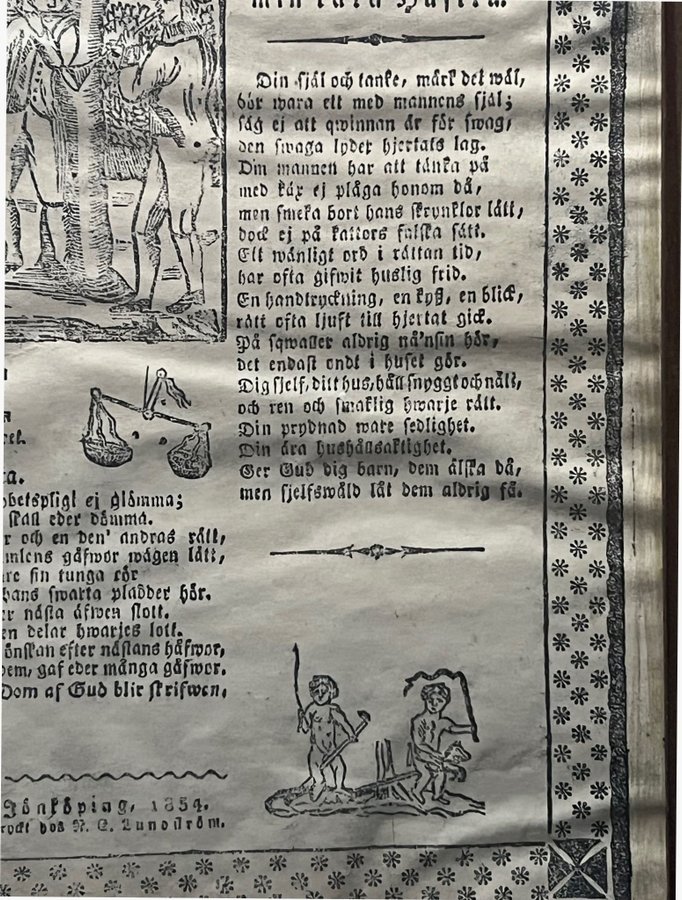 min kära Hustru.
Din själ och tanke, märk det wäl,
bör wara ett med mannens själ;
säg ej att qwinnan är för swag,
den swaga lyder hjertats lag.
Din mannen har att tänka på
med käx ej plåga honom då,
men smeka bort hans skrynklor lätt,
dock ej på kattors falska sätt.
Ett wänligt ord i rättan tid,
har ofta gifwit huslig frid.
En handtryckning, en kyss, en blick,
rätt ofta ljuft till hjertat gick.
På sqwaller aldrig nå'nsin hör,
det endast ondt i huset gör.
Dig sjelf, ditt hus, håll snyggt och nätt,
och ren och smaklig hwarje rätt.
Din prydnad ware sedlighet.
Din ära hushållsaktighet.
Ger Gud dig barn, dem älska då,
men sjelfswåld låt dem aldrig få.
betspligt ej glömma;
skall eder dömma.
r och en den' andras rätt,
gåfwor wägen lätt,
sin tunga rör
hans swarta pladder hör.
nästa äfwen slott.
en delar hwarjes lott.
önskan efter nästans håfwor,
dem, gaf eder många gåfwor.
Dom af Gud blir skrifwen,
Jönköping, 1854.
rckt hos N. E. Lundström.